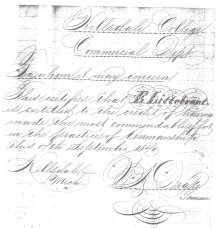 Hillsdale College
Commercial Dept.
To whom it may concern
This certifies that
is entitled to the credit of having
made the most commendable effort
in the practice of Penmanship
this 10th September
Hillsdale
Mich
Penman